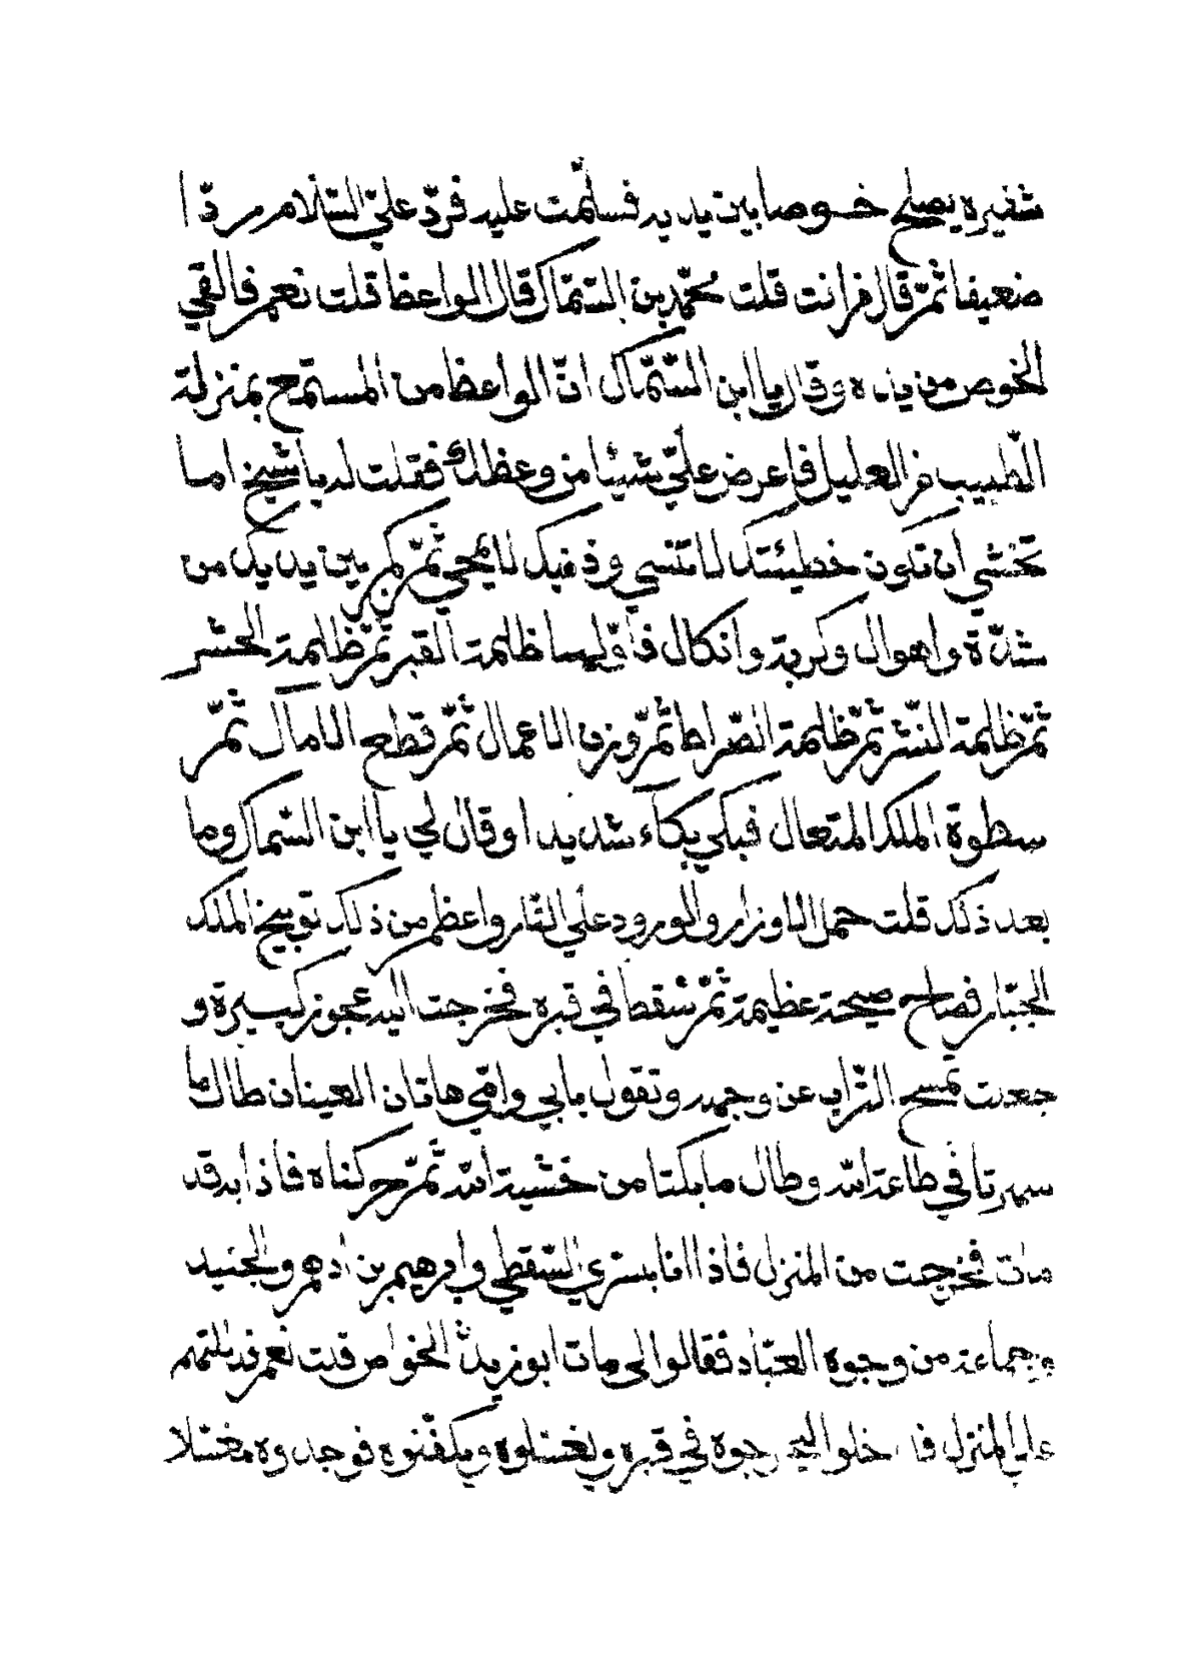 شفيره يصلح خوصا بين يديه فسلّمت عليه فردّ عليّ السّلام ردّا
ضعيفا ثمّ قال من انت قلت محمّد بن السّمّاك قال الواعظ قلت نعم فالقي
الخوص من يده وقال يا ابن السّمّاك انّ الواعظ من المستمع بمنزلة
الطّبيب من العليل فاعرض عليّ شيئا من وعظك فقلت له يا شيخ اما
تخشي ان تكون خطيئتك لا تنسي وذنبك لا يمحي ثمّ كم بين يديك من
شدّة واهوال وكربة وانكال فاوّلها ظلمة القبر ثمّ ظلمة الحشر
ثمّ ظلمة النّشر ثمّ ظلمة الصّراط ثمّ وزن الاعمال ثمّ قطع الامال ثمّ
سطوة الملك المتعال فبكي بكآء شديدا وقال لي يا ابن السّماك وما
بعد ذلك قلت حمل الاوزار والورود علي النّار واعظم من ذلك توبيخ الملك
الجبّار فصاح صيحة عظيمة ثمّ سقط في قبره فخرجت اليه عجوز كبيرة و
جعلت تمسح التّراب عن وجهه وتقول بابي وامّي هاتان العينان طال ما
سهرتا في طاعة الله وطال ما بكتا من خشية الله ثمّ حركناه فاذا به قد
مات فخرجت من المنزل فاذا انا بسريّ السّقطي وابرهيم بن ادهم والجنيد
وجماعة من وجوه العبّاد فقالوا لي مات ابو زيد الخواص قلت نعم
علي المنزل خلوا في قبره ويغسّلوه ويكفّنوه فوجدوه مغسّلا